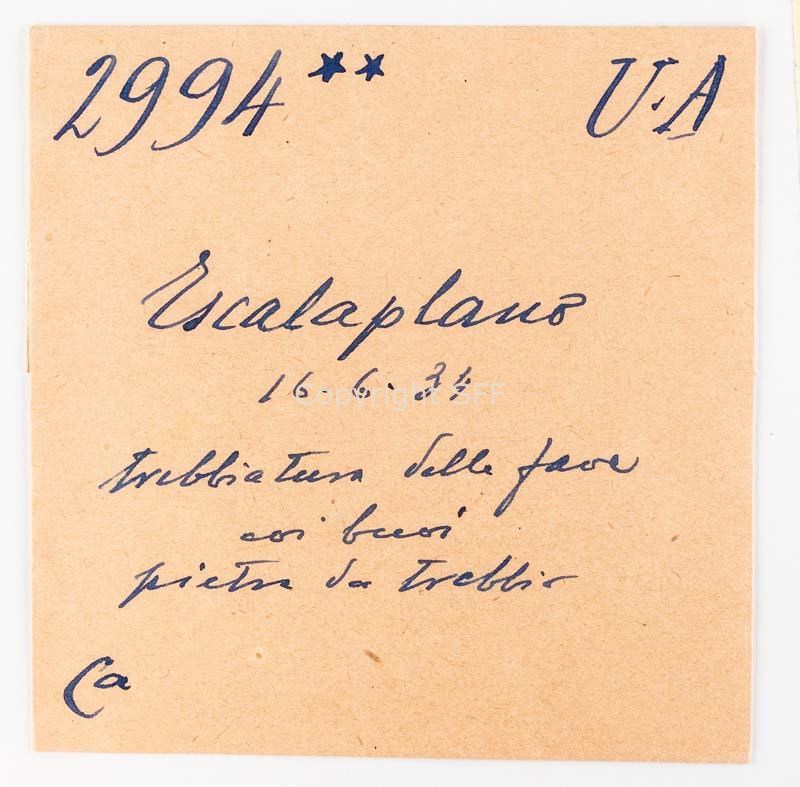 2994** U.A
Escalaplano
16.6.34
trebbiatura delle fave
coi buoi
pietra da trebbia
Ca
Copyright SFF